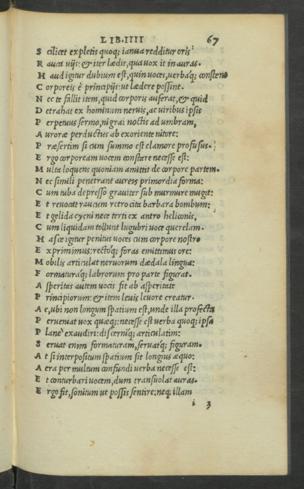 LIB. IIII 67
Scilicet expletis quoq; ianua redditur oris
Rauca uijs: & iter lædit, qua uox it in auras.
Haud igitur dubium est, quin uoces, uerbaq; constent
Corporeis è principijs: ut lædere possint.
Nec te fallit item, quid corporis auferat, & quid
Detrahat ex hominum neruis, ac uiribus ipsis
Perpetuus sermo, nigrai noctis ad umbram,
Auroræ perductus ab exoriente nitore:
Præsertim si cum summo est clamore profusus.
Ergo corpoream uocem constare necesse est:
Multa loquens quoniam amittit de corpore partem.
Nec simili penetrant aureis primordia forma:
Cum tuba depresso grauiter sub murmure mugit:
Et reuocat raucum retro cita barbara bombum;
Et gelida cycni nece torti ex antro heliconis,
Cum liquidam tollunt lugubri uoce querelam.
Hasce igitur penitus uoces cum corpore nostro
Exprimimus; rectoq; foras emittimus ore:
Mobilis articulat neruorum dædala lingua:
Formaturaq; labrorum pro parte figurat.
Asperitas autem uocis fit ab asperitate
Principiorum: & item leuis leuore creatur.
At, ubi non longum spatium est, unde illa profecta
Perueniat uox quæq; necesse est uerba quoq; ipsa
Plane exaudiri: discerniq; articulatim:
Seruat enim formaturam, seruatq; figuram.
At si interpositum spatium sit longius æquo:
Aera per multum confundi uerba necesse est:
Et conturbari uocem, dum transuolat auras.
Ergo fit, sonitum ut possis sentire: neq; illam
i 3